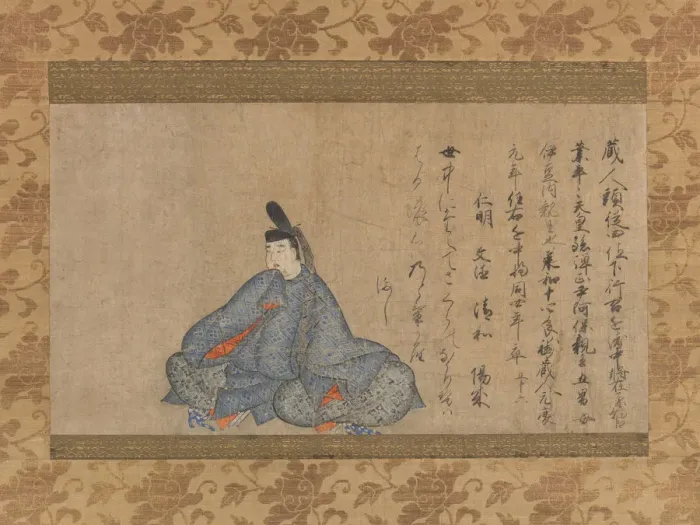 蔵人頭従四位下行右近衛中将在原朝臣
業平 天皇孫弾正尹阿保親王五男母
伊豆内親王也承和十四年補蔵人元慶
元年任右近中将同四年卒 五十六
仁明 文徳 清和 陽成
世中にたえてさくらのなかりせハ
はるの
まし